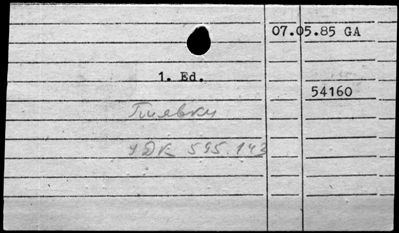 07.05.85 GA
1. Ed.
54160
Пиявки
УДК 595.143